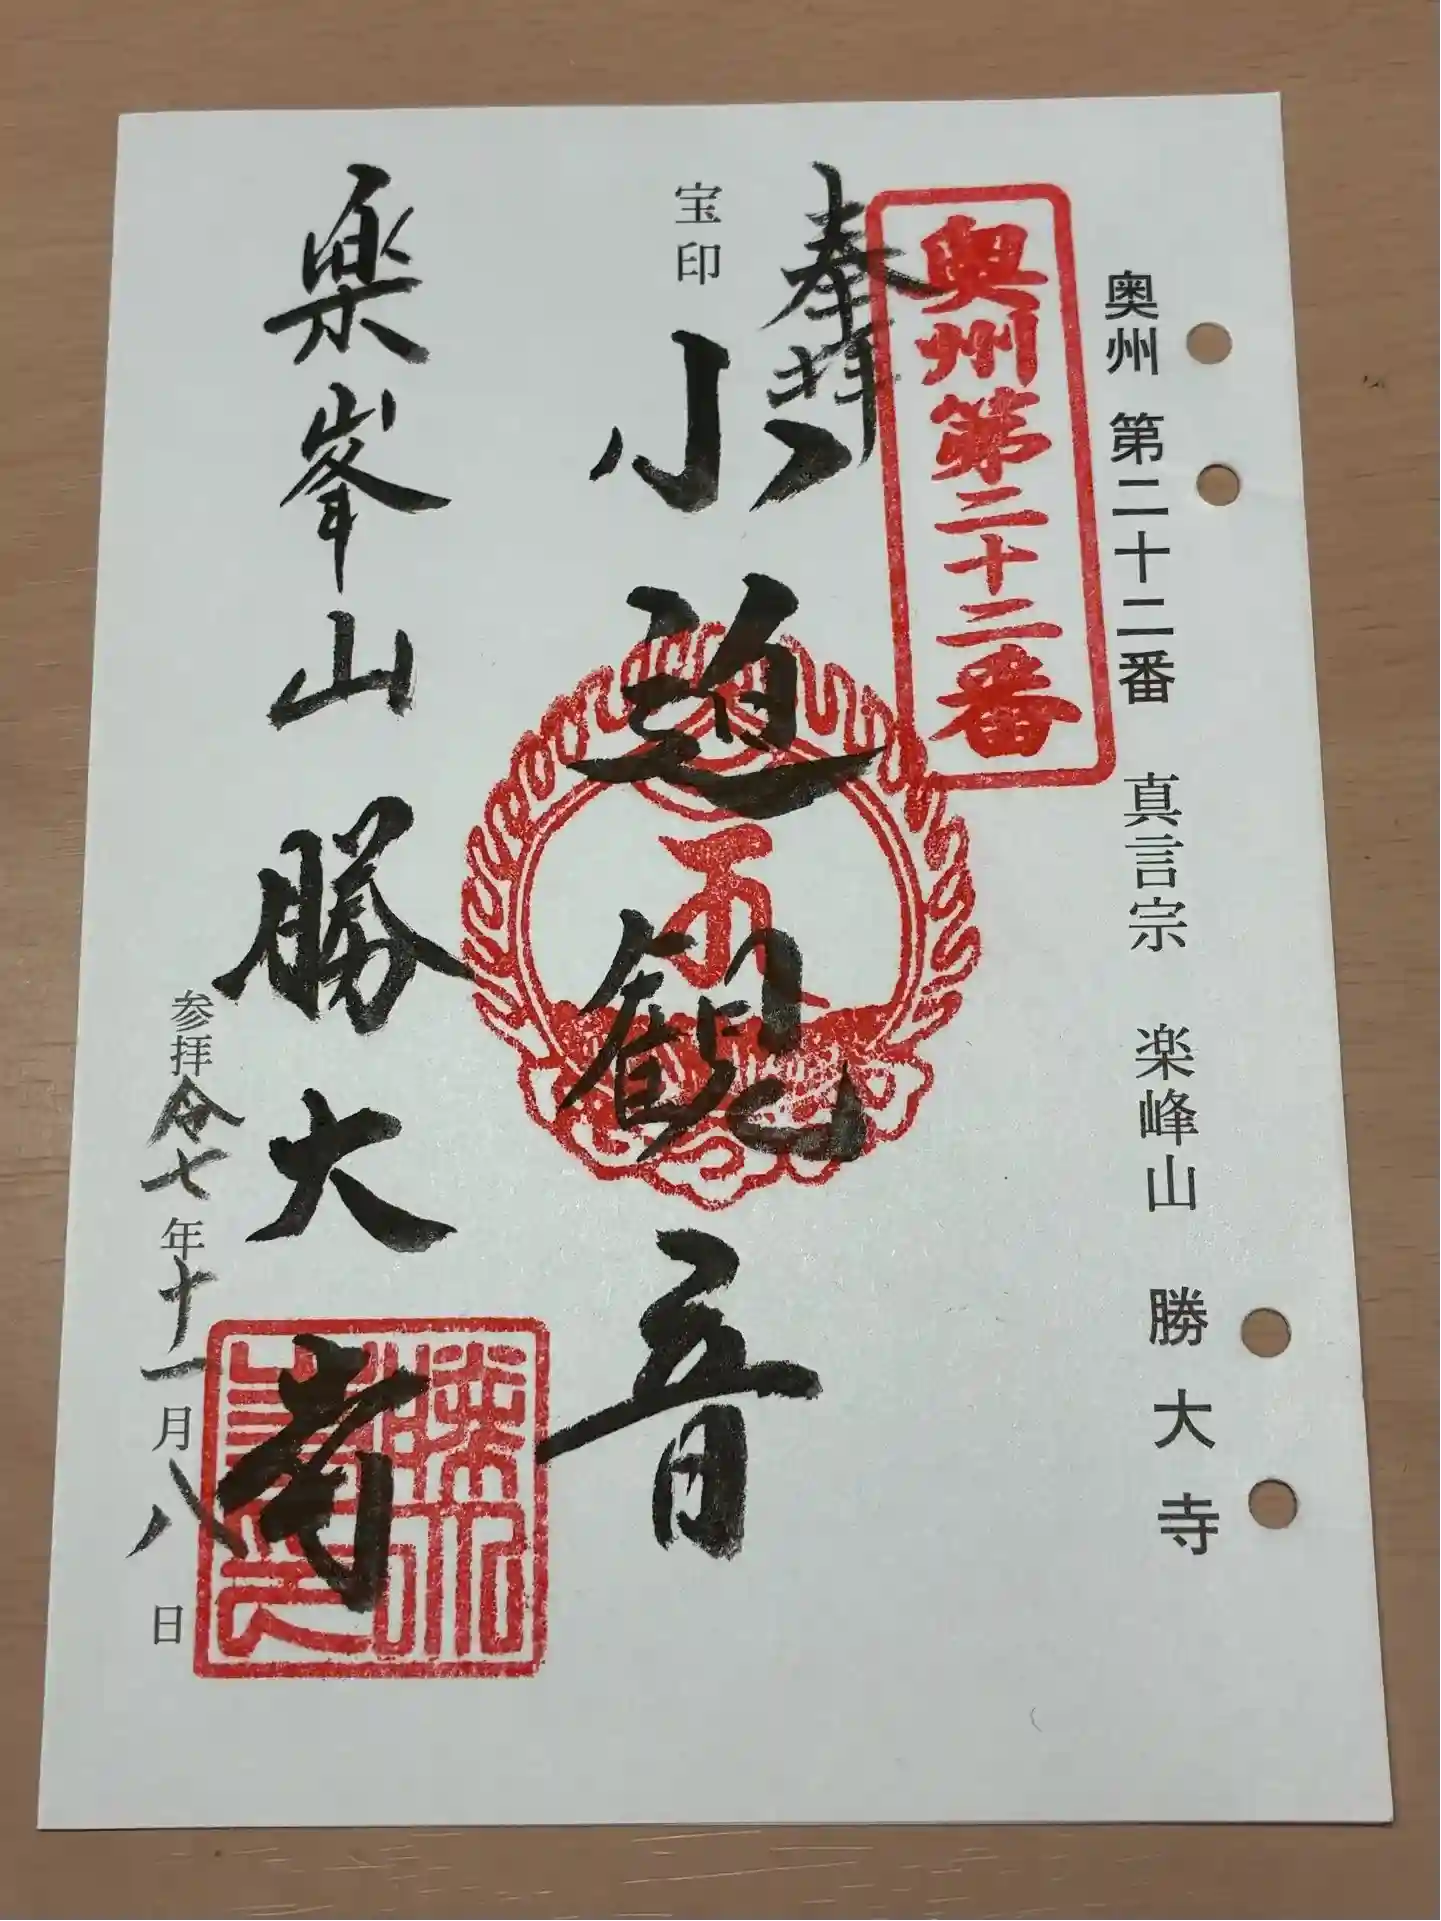 奥州 第二十二番 真言宗 楽峰山 勝大寺
奥州第二十二番
奉拝
宝印
小迫観音
楽峯山勝大寺
参拝令七年十一月八日